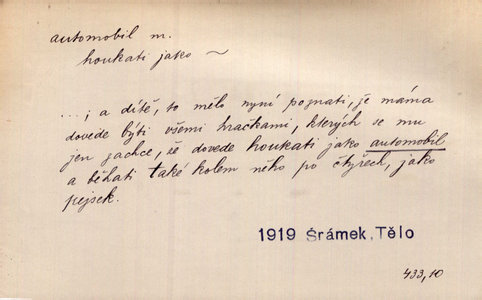 automobil m.
houkati jako ~
...; a dítě, to mělo nyní poznati, že máma
dovede býti všemi hračkami, kterých se mu
jen zachce, že dovede houkati jako automobil
a běhati také kolem něho po čtyřech, jako
pejsek.
1919 Šrámek, Tělo
433,10